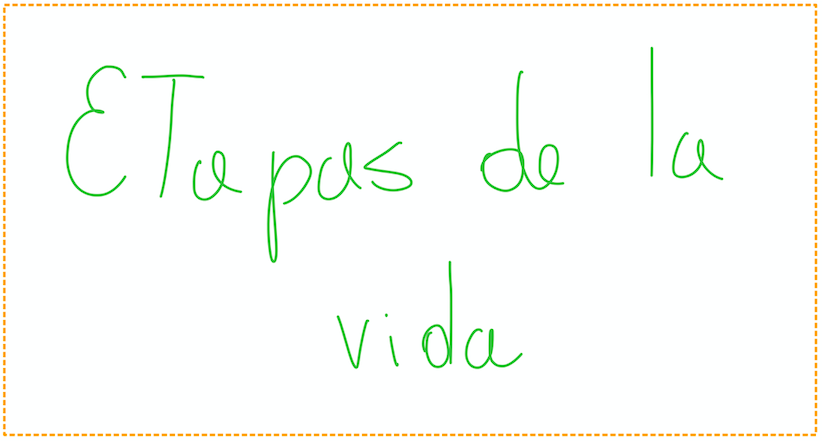 ETapas de la
vida